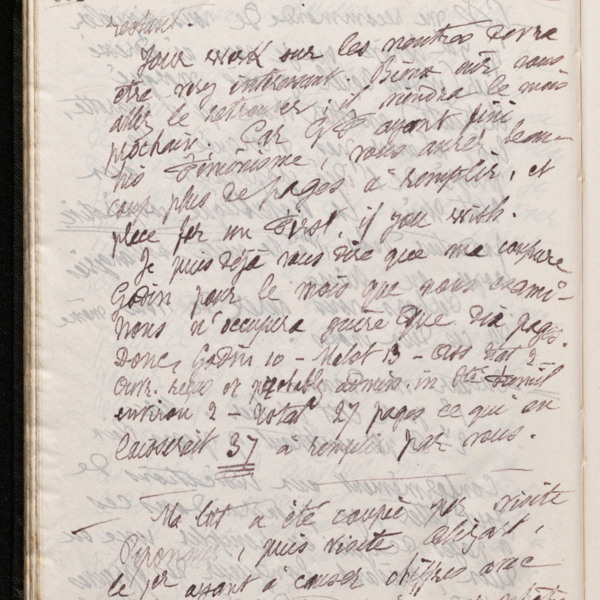 restant.
Your work sur les nôtres devra
être very intéressant. Bien sûr vous
allez le retrouver; il viendra le mois
prochain. Car ayant fini
his Féminisme, vous aurez beau-
coup plus de pages à remplir, et
place for un first, if you wish.
Je puis déjà vous dire que ma coupure
Godin pour le mois que nous exami-
nons n'occupera guère que dix pages.
Donc, Godin 10 - 13 - 2 -
admis. in
environ 2 - Total 27 pages ce qui en
laisserait 37 à remplir par vous.
Ma été coupée par visite
, puis visite
le 1er ayant à causer chiffres avec